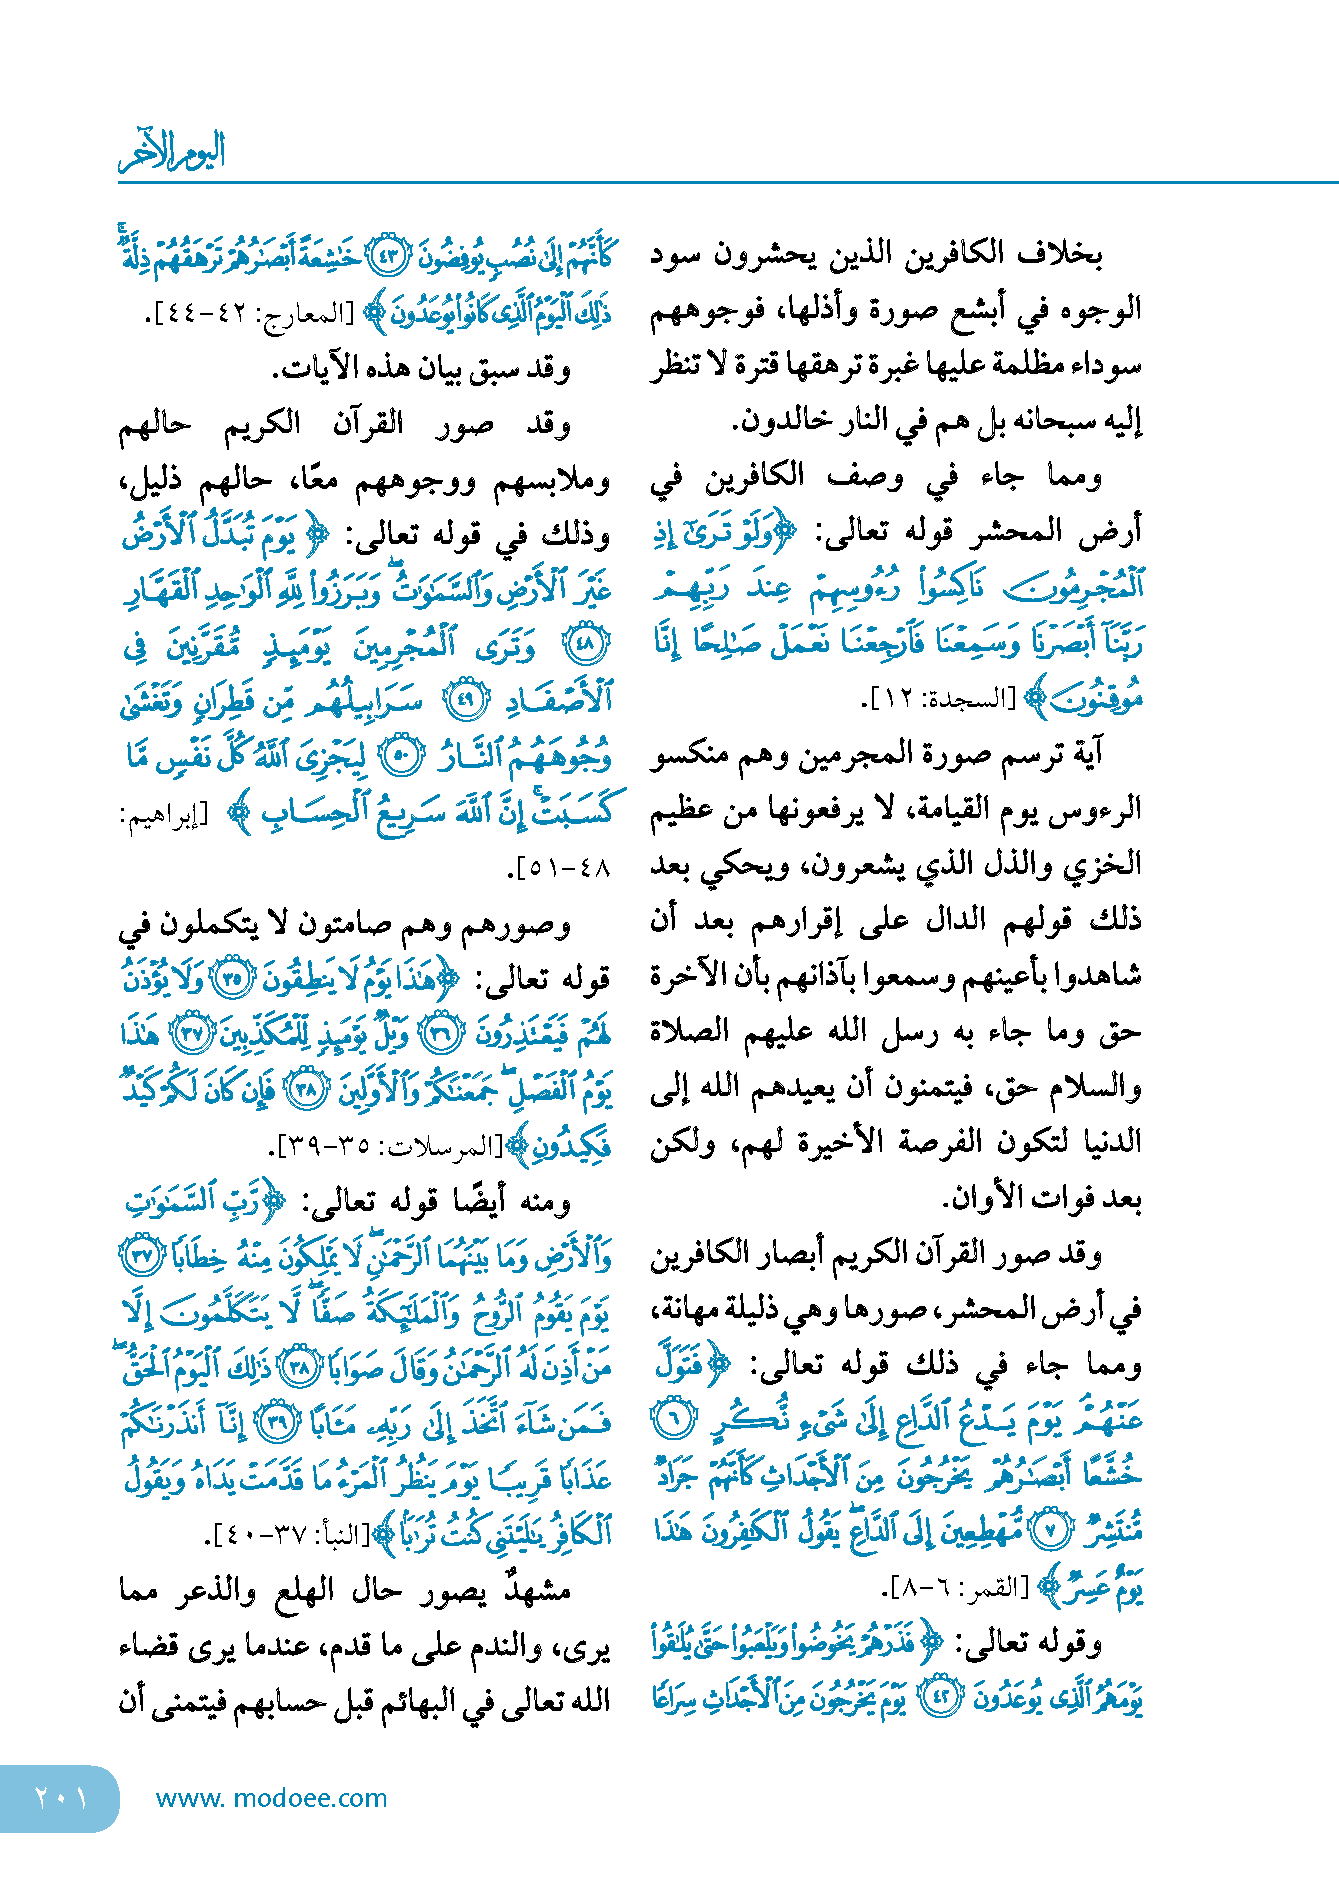 اليوم الآخر
بخلاف الكافرين الذين يحشرون سود
الوجوه في أبشع صورة وأذلها، فوجوههم
سوداء مظلمة عليها غبرة ترهقها قترة لا تنظر
إليه سبحانه بل هم في النار خالدون.
ومما جاء في وصف الكافرين في
أرض المحشر قوله تعالى: ﴿وَلَوْ تَرَىٰٓ إِذِ
ٱلْمُجْرِمُونَ نَاكِسُوا۟ رُءُوسِهِمْ عِندَ رَبِّهِمْ
رَبَّنَآ أَبْصَرْنَا وَسَمِعْنَا فَٱرْجِعْنَا نَعْمَلْ صَٰلِحًا إِنَّا
مُوقِنُونَ﴾ [السجدة: ١٢].
آية ترسم صورة المجرمين وهم منكسو
الرءوس يوم القيامة، لا يرفعونها من عظيم
الخزي والذل الذي يشعرون، ويحكي بعد
ذلك قولهم الدال على إقرارهم بعد أن
شاهدوا بأعينهم وسمعوا بآذانهم بأن الآخرة
حق وما جاء به رسل الله عليهم الصلاة
والسلام حق، فيتمنون أن يعيدهم الله إلى
الدنيا لتكون الفرصة الأخيرة لهم، ولكن
بعد فوات الأوان.
وقد صور القرآن الكريم أبصار الكافرين
في أرض المحشر، صورها وهي ذليلة مهانة،
ومما جاء في ذلك قوله تعالى: ﴿فَتَوَلَّ
عَنْهُمْ يَوْمَ يَدْعُ ٱلدَّاعِ إِلَىٰ شَىْءٍ نُّكُرٍ ٦
خُشَّعًا أَبْصَٰرُهُمْ يَخْرُجُونَ مِنَ ٱلْأَجْدَاثِ كَأَنَّهُمْ جَرَادٌ
مُّنتَشِرٌ ٧ مُّهْطِعِينَ إِلَى ٱلدَّاعِ ۖ يَقُولُ ٱلْكَٰفِرُونَ هَٰذَا
يَوْمٌ عَسِرٌ﴾ [القمر: ٦-٨].
وقوله تعالى: ﴿فَذَرْهُمْ يَخُوضُوا۟ وَيَلْعَبُوا۟ حَتَّىٰ يُلَٰقُوا۟
يَوْمَهُمُ ٱلَّذِى يُوعَدُونَ ٤٢ يَوْمَ يَخْرُجُونَ مِنَ ٱلْأَجْدَاثِ سِرَاعًا
كَأَنَّهُمْ إِلَىٰ نُصُبٍ يُوفِضُونَ ٤٣ خَٰشِعَةً أَبْصَٰرُهُمْ تَرْهَقُهُمْ ذِلَّةٌ ۚ
ذَٰلِكَ ٱلْيَوْمُ ٱلَّذِى كَانُوا۟ يُوعَدُونَ﴾ [المعارج: ٤٢-٤٤].
وقد سبق بيان هذه الآيات.
وقد صور القرآن الكريم حالهم
وملابسهم ووجوههم معًا، حالهم ذليل،
وذلك في قوله تعالى: ﴿يَوْمَ تُبَدَّلُ ٱلْأَرْضُ
غَيْرَ ٱلْأَرْضِ وَٱلسَّمَٰوَٰتُ ۖ وَبَرَزُوا۟ لِلَّهِ ٱلْوَٰحِدِ ٱلْقَهَّارِ
٤٨ وَتَرَى ٱلْمُجْرِمِينَ يَوْمَئِذٍ مُّقَرَّنِينَ فِى
ٱلْأَصْفَادِ ٤٩ سَرَابِيلُهُم مِّن قَطِرَانٍ وَتَغْشَىٰ
وُجُوهَهُمُ ٱلنَّارُ ٥٠ لِيَجْزِىَ ٱللَّهُ كُلَّ نَفْسٍ مَّا
كَسَبَتْ ۚ إِنَّ ٱللَّهَ سَرِيعُ ٱلْحِسَابِ﴾ [إبراهيم:
٤٨-٥١].
وصورهم وهم صامتون لا يتكملون في
قوله تعالى: ﴿هَٰذَا يَوْمُ لَا يَنطِقُونَ ٣٥ وَلَا يُؤْذَنُ
لَهُمْ فَيَعْتَذِرُونَ ٣٦ وَيْلٌ يَوْمَئِذٍ لِّلْمُكَذِّبِينَ ٣٧ هَٰذَا
يَوْمُ ٱلْفَصْلِ ۖ جَمَعْنَٰكُمْ وَٱلْأَوَّلِينَ ٣٨ فَإِن كَانَ لَكُمْ كَيْدٌ
فَكِيدُونِ﴾[المرسلات: ٣٥-٣٩].
ومنه أيضًا قوله تعالى: ﴿رَّبِّ ٱلسَّمَٰوَٰتِ
وَٱلْأَرْضِ وَمَا بَيْنَهُمَا ٱلرَّحْمَٰنِ ۖ لَا يَمْلِكُونَ مِنْهُ خِطَابًا ٣٧
يَوْمَ يَقُومُ ٱلرُّوحُ وَٱلْمَلَٰٓئِكَةُ صَفًّا ۖ لَّا يَتَكَلَّمُونَ إِلَّا
مَنْ أَذِنَ لَهُ ٱلرَّحْمَٰنُ وَقَالَ صَوَابًا ٣٨ ذَٰلِكَ ٱلْيَوْمُ ٱلْحَقُّ ۖ
فَمَن شَآءَ ٱتَّخَذَ إِلَىٰ رَبِّهِۦ مَـَٔابًا ٣٩ إِنَّآ أَنذَرْنَٰكُمْ
عَذَابًا قَرِيبًا يَوْمَ يَنظُرُ ٱلْمَرْءُ مَا قَدَّمَتْ يَدَاهُ وَيَقُولُ
ٱلْكَافِرُ يَٰلَيْتَنِى كُنتُ تُرَٰبًۢا﴾[النبأ: ٣٧-٤٠].
مشهدٌ يصور حال الهلع والذعر مما
يرى، والندم على ما قدم، عندما يرى قضاء
الله تعالى في البهائم قبل حسابهم فيتمنى أن
www. modoee.com
٢٠١